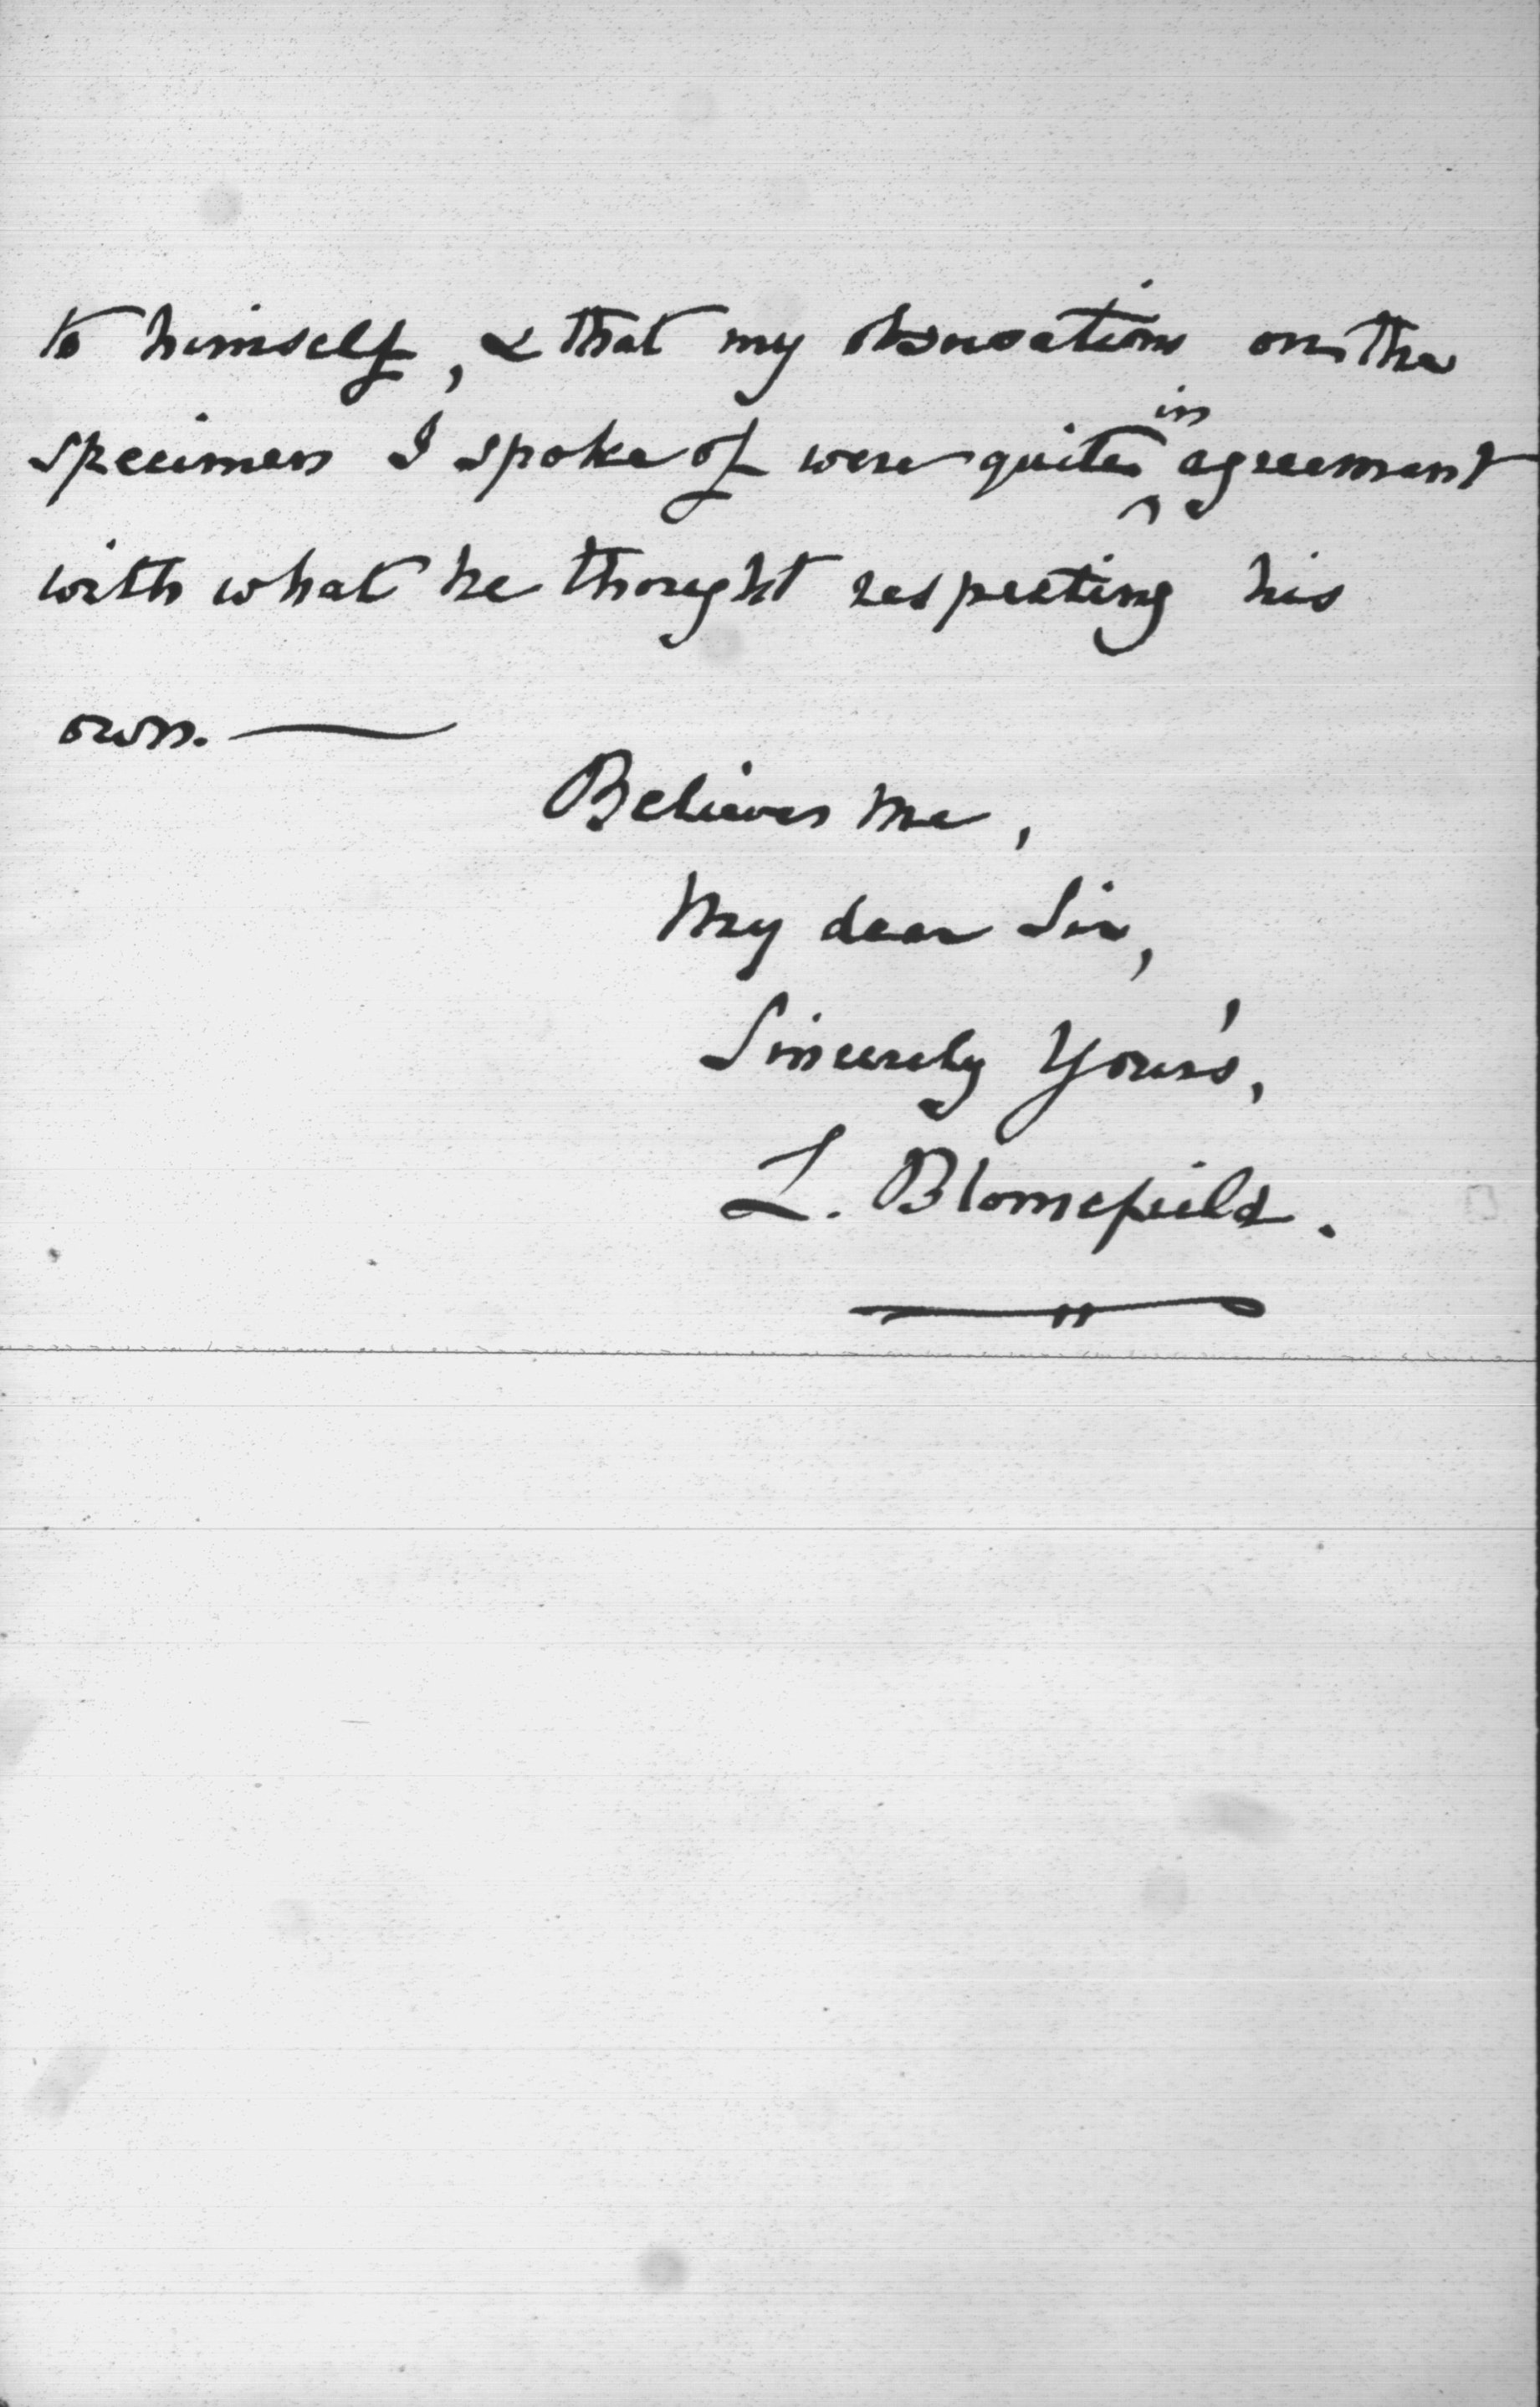 to himself, & that my observations on the
specimen I spoke of were quite in agreement
with what he thought respecting his
own. —
Believe me,
My dear Sir,
Sincerely Your's,
L. Blomefield.